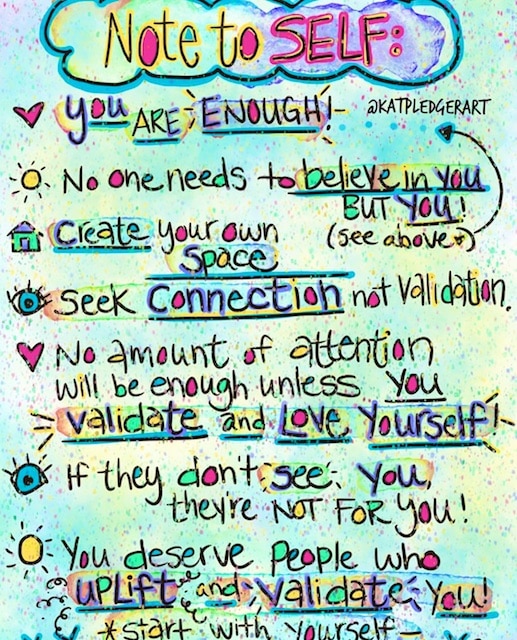 Note to SELF:
YOU ARE ENOUGH!
@KATPLEDGERART
No one needs to believe in you
BUT YOU!
(see above)
Create your own
Space
Seek Connection not validation.
No amount of attention
will be enough unless you
validate and Love Yourself!
If they don't see you,
they're NOT FOR you!
You deserve People who
UPLift and validate you!
*start with yourself